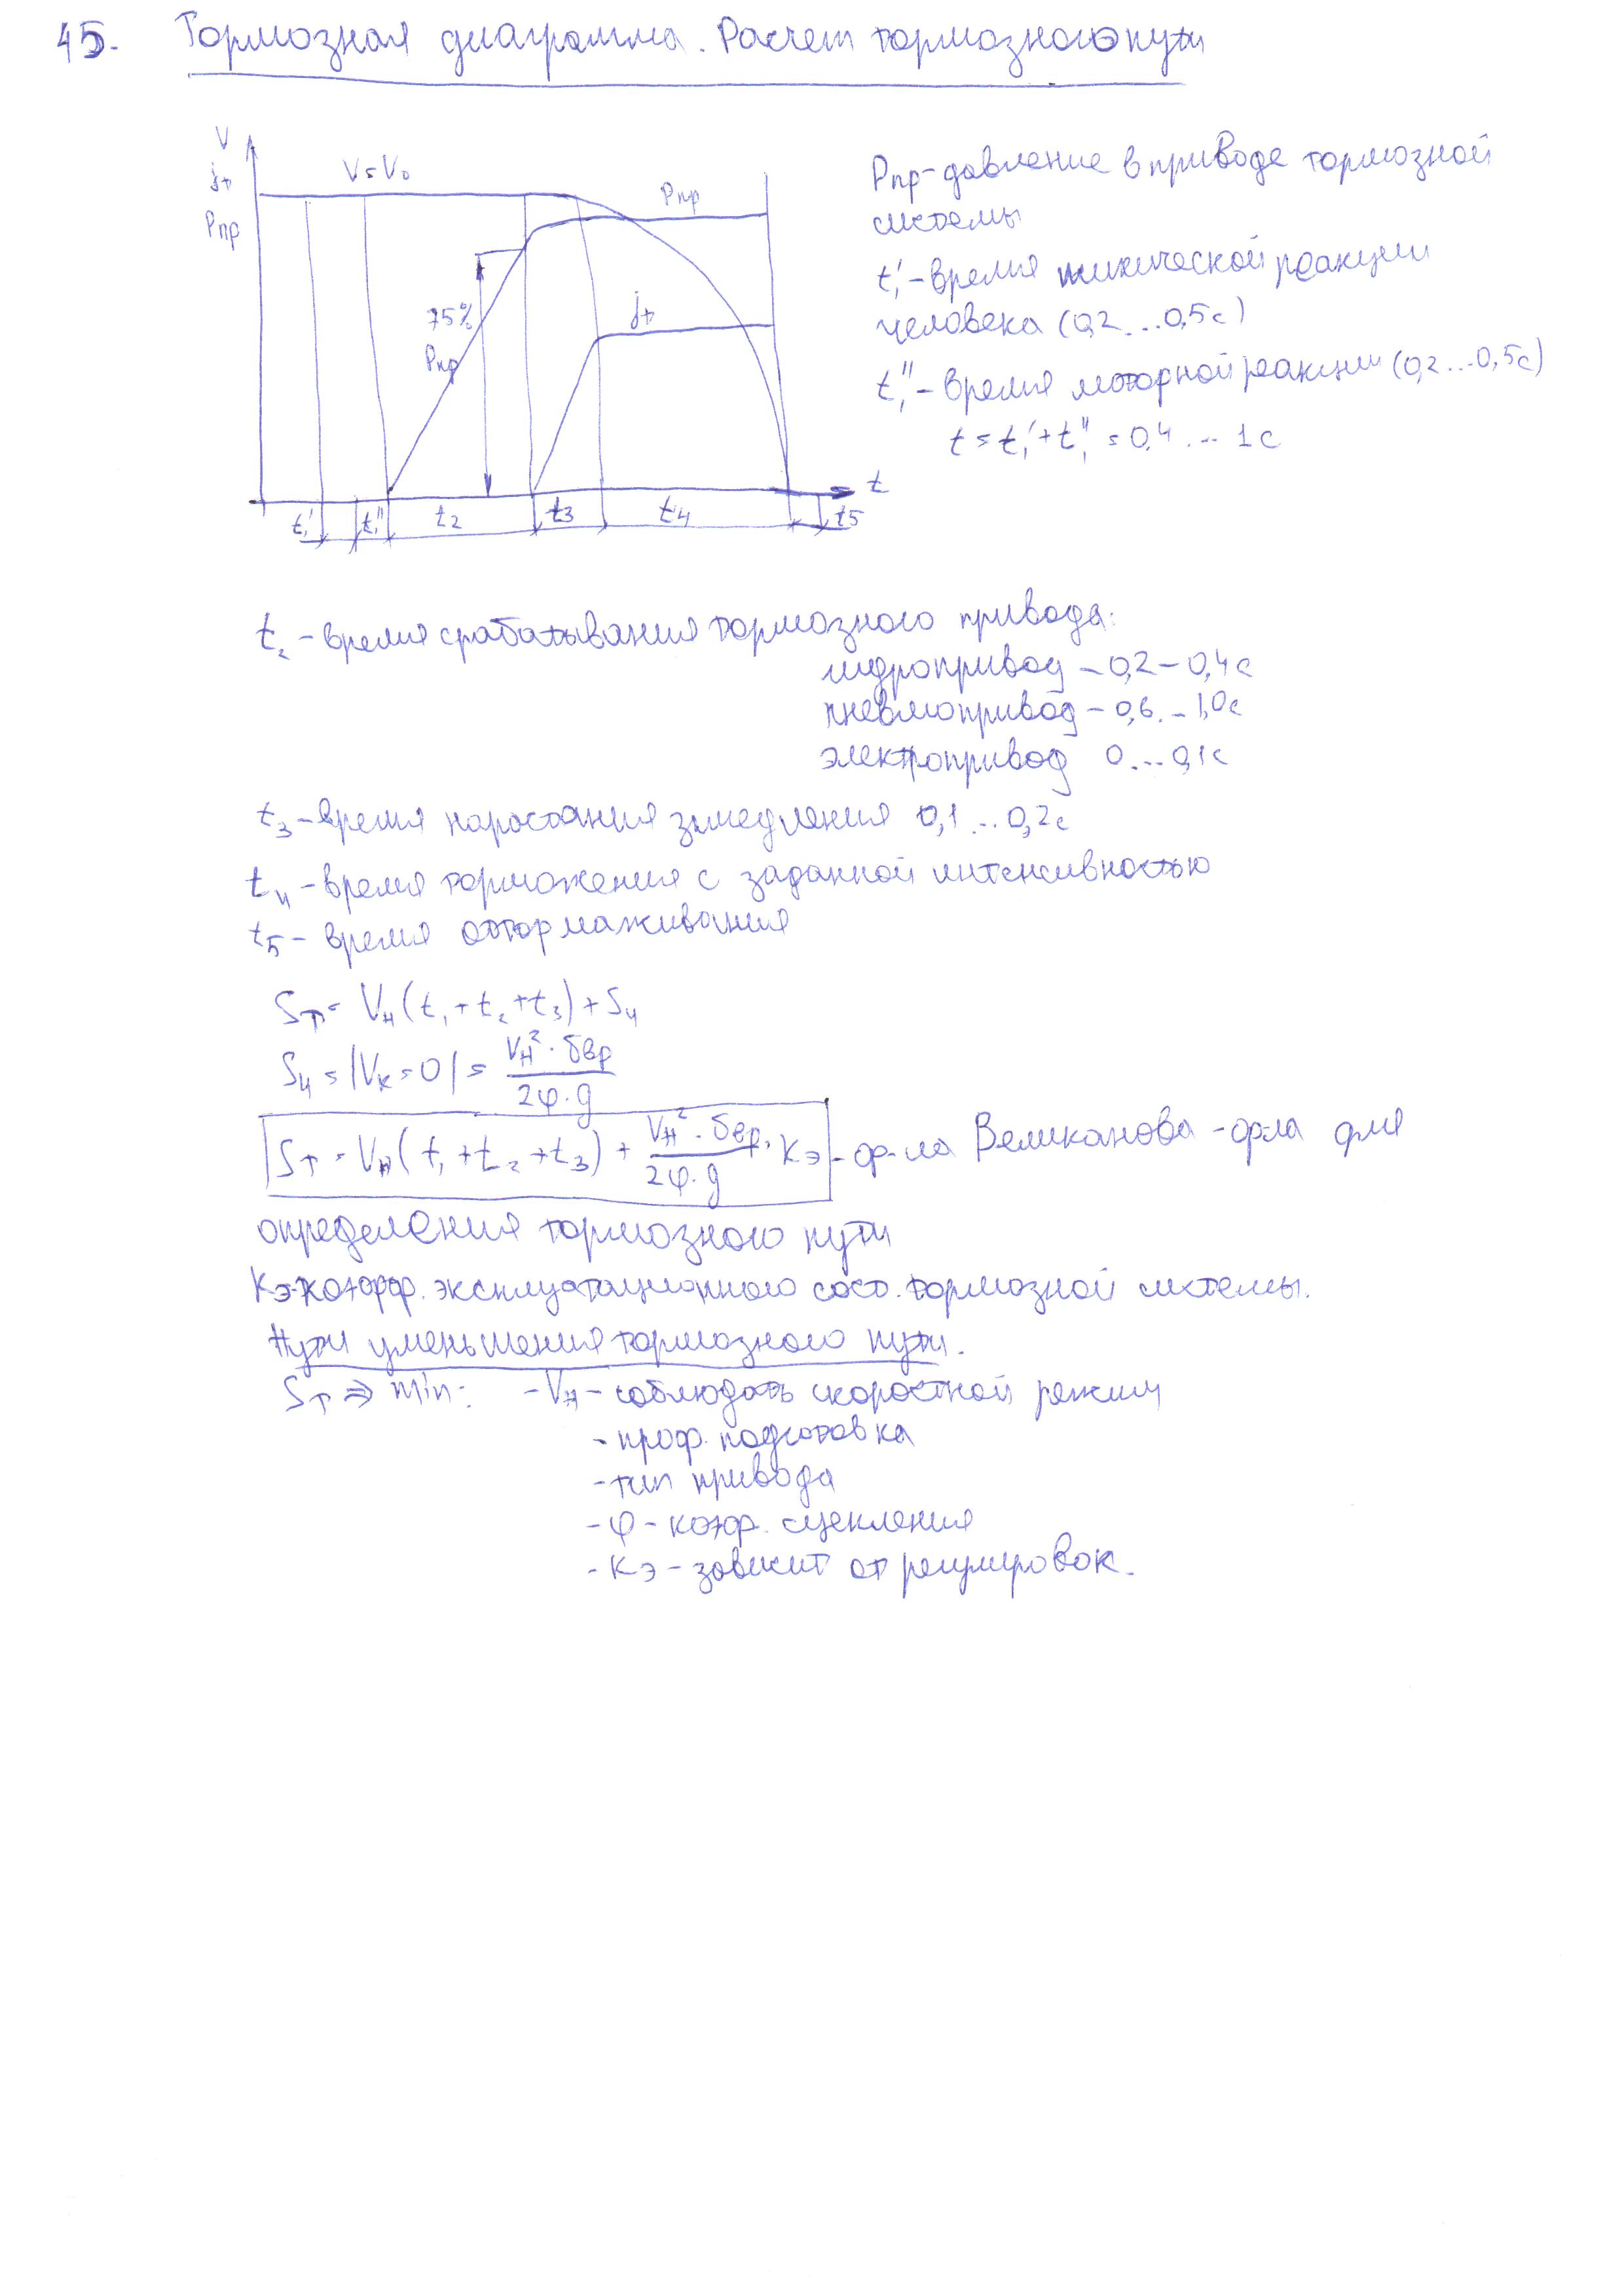 45. Тормозная диаграмма. Расчет тормозного пути
V
jт
Pпр
V=V₀
Pпр
75%
Pпр
jт
t
t₁' t₁'' t₂ t₃ t₄ t₅
Pпр-давление в приводе тормозной
системы
t₁'-время психической реакции
человека (0,2...0,5с)
t₁''-время моторной реакции (0,2...0,5с)
t=t₁'+t₁''=0,4...1с
t₂-время срабатывания тормозного привода:
гидропривод-0,2-0,4с
пневмопривод-0,6...1,0с
электропривод 0...0,1с
t₃-время наростания замедления 0,1...0,2с
t₄-время торможения с заданной интенсивностью
t₅-время оттормаживания
Sт=Vн(t₁+t₂+t₃)+S₄
S₄=|Vк=0|=Vн²·δвр/2φ·g
Sт=Vн(t₁+t₂+t₃)+Vн²·δвр/2φ·g·Kэ-ф-ла Великанова-ф-ла для
определения тормозного пути
Kэ-коэфф. эксплуатационного сост. тормозной системы.
Пути уменьшения тормозного пути.
Sт⇒min: -Vн-соблюдать скоростной режим
-проф. подготовка
-тип привода
-φ-коэф. сцепления
-Kэ-зависит от регулировок.